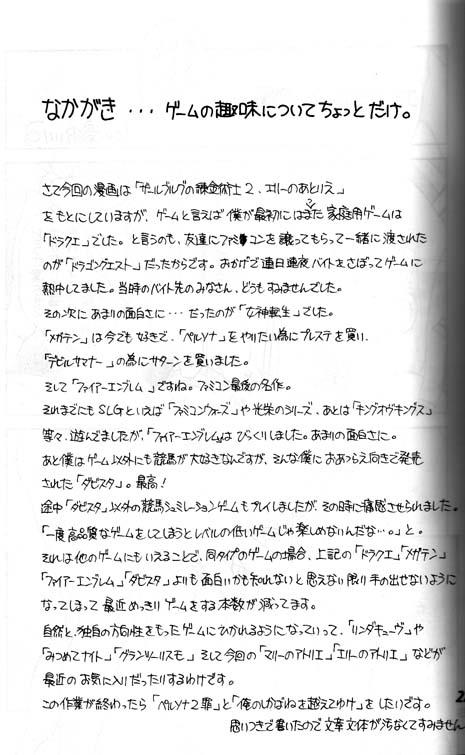 なかがき・・・ゲームの趣味についてちょっとだけ。
さて今回の漫画は「ザールブルグの錬金術士2、エリーのあとりえ」
をもとにしていますが、ゲームと言えば僕が最初にはまった家庭用ゲームは
「ドラクエ」でした。と言うのも、友達にファミコンを譲ってもらって一緒に渡された
のが「ドラゴンクエスト」だったからです。おかげで連日連夜バイトをさぼってゲームに
熱中してました。当時のバイト先のみなさん、どうもすみませんでした。
その次にあまりの面白さに・・・だったのが「女神転生」でした。
「メガテン」は今でも好きで、「ペルソナ」をやりたい為にプレステを買い、
「デビルサマナー」の為にサターンを買いました。
そして「ファイアーエンブレム」ですね。ファミコン最後の名作。
それまでにもSLGといえば「ファミコンウォーズ」や光栄のシリーズ、あとは「キングオヴキングス」
等々、遊んでましたが、「ファイアーエンブレム」はびっくりしました。あまりの面白さに。
あと僕はゲーム以外にも競馬が大好きなんですが、そんな僕におあつらえ向きで発売
された「ダビスタ」。最高!
途中「ダビスタ」以外の競馬シュミレーションゲームもプレイしましたが、その時に痛感させられました。
「一度高品質なゲームをしてしまうとレベルの低いゲームじゃ楽しめないんだな…。」と。
それは他のゲームにもいえることで、同タイプのゲームの場合、上記の「ドラクエ」「メガテン」
「ファイアーエンブレム」「ダビスタ」よりも面白いかも知れないと思えない限り手の出せないように
なってしまって最近めっきりゲームをする本数が減ってます。
自然と、独自の方向性をもったゲームにひかれるようになっていって、「リンダキューヴ」や
「みつめてナイト」「グランツーリスモ」そして今回の「マリーのアトリエ」「エリーのアトリエ」などが
最近のお気に入りだったりするわけです。
この作業が終わったら「ペルソナ2罪」と「俺のしかばねを越えてゆけ」をしたいです。
思いつきで書いたので文章文体が汚なくてすみません